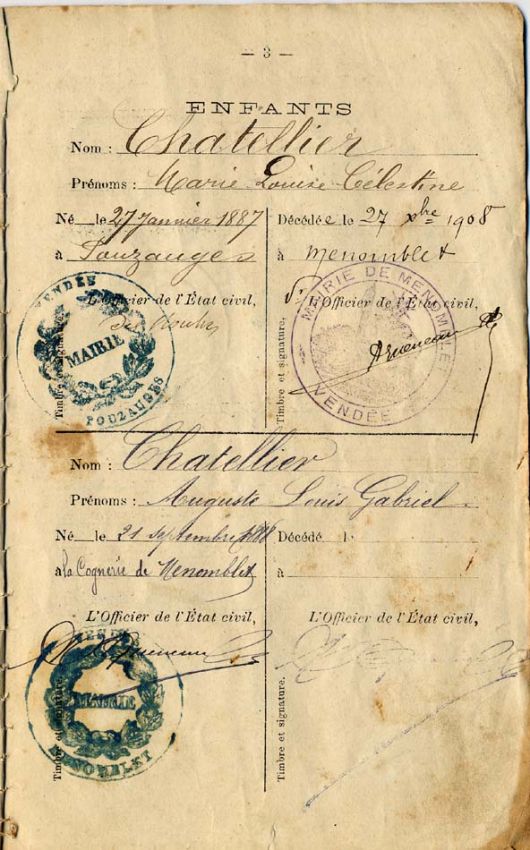 — 3 —
ENFANTS
Nom : Chatellier
Prénoms : Marie Louise Célestine
Né le 27 Janvier 1887
à Pouzauges
L'Officier de l'État civil,
Timbre et signature.
VENDÉE
MAIRIE
POUZAUGES
Décédée le 27 xbre 1908
à Menomblet
L'Officier de l'État civil,
Timbre et signature.
MAIRIE DE MENOMBLET
VENDÉE
Nom : Chatellier
Prénoms : Auguste Louis Gabriel
Né le 21 septembre
à la Cognerie de Menomblet
L'Officier de l'État civil,
Timbre et signature.
VENDÉE
MAIRIE
MENOMBLET
Décédé l
à
L'Officier de l'État civil,
Timbre et signature.